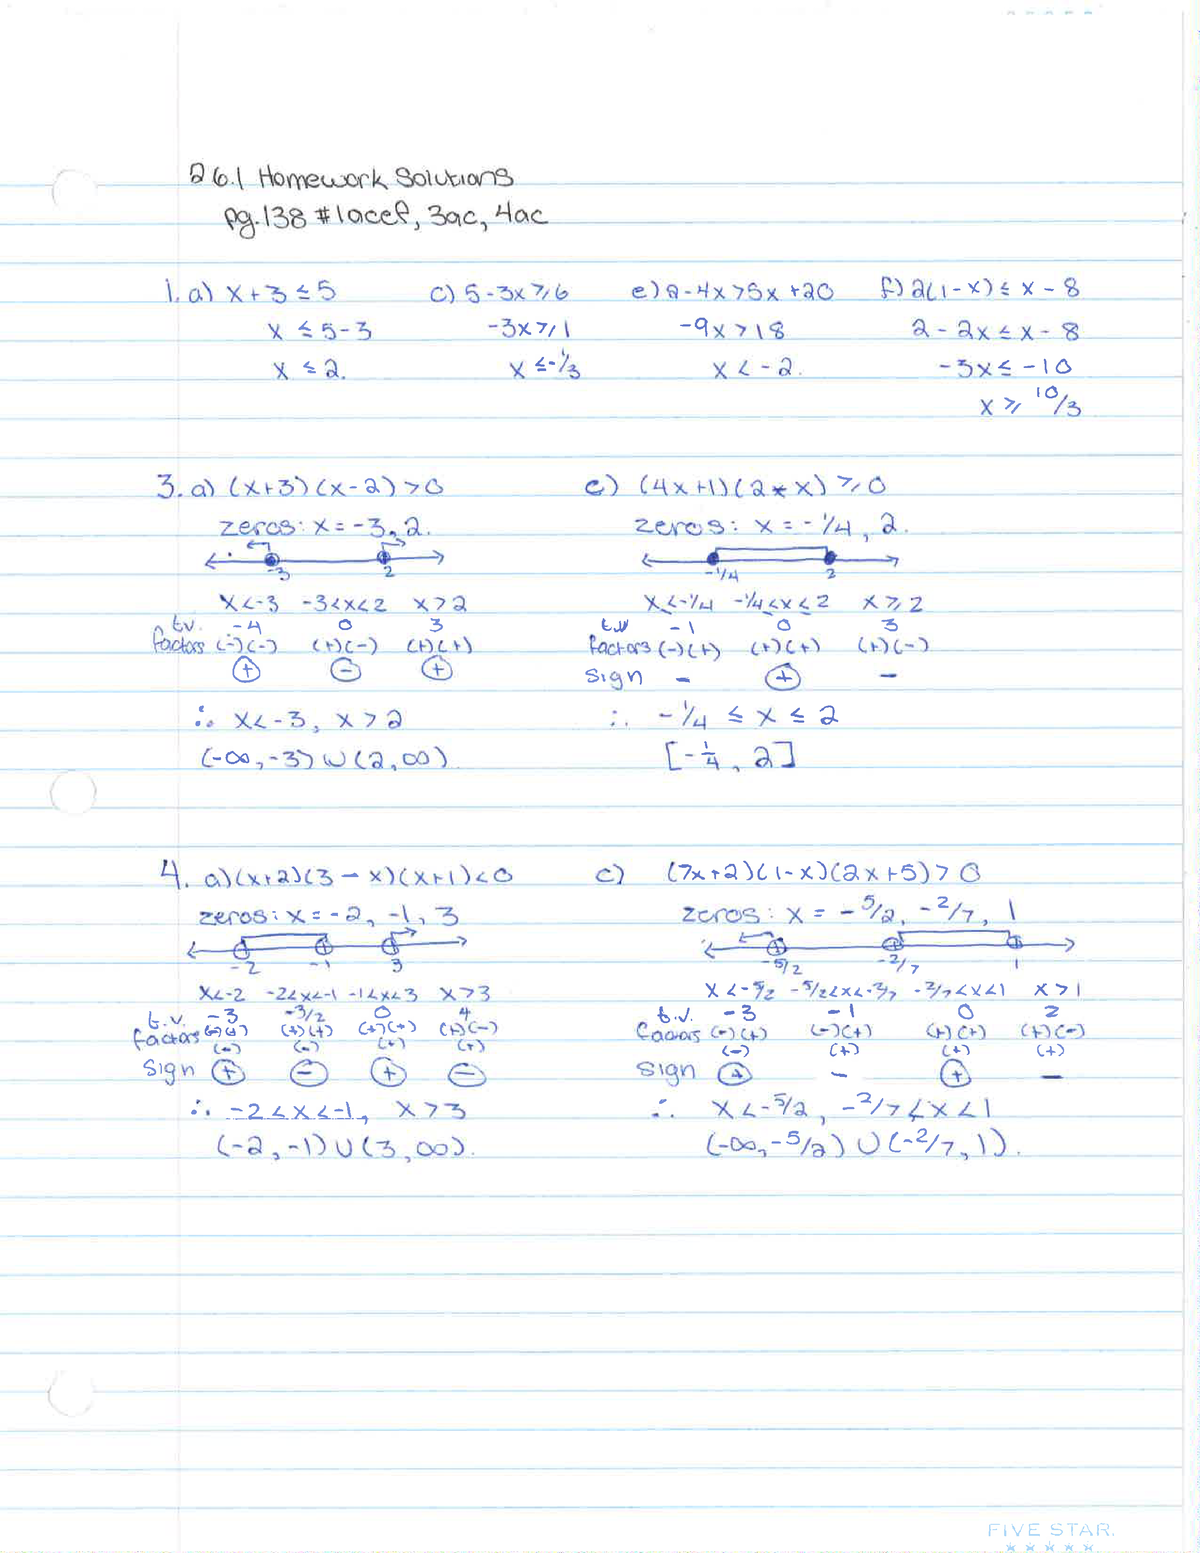 2.6.1 Homework Solutions
pg.138 #1acef, 3ac, 4ac
1. a) x+3 ≤ 5
x ≤ 5-3
x ≤ 2.
c) 5-3x ≥ 6
-3x ≥ 1
x ≤ -1/3
e) 2-4x > 5x +20
-9x > 18
x < -2.
f) 2(1-x) ≤ x - 8
2 - 2x ≤ x - 8
-3x ≤ -10
x ≥ 10/3
3. a) (x+3)(x-2) > 0
zeros: x = -3, 2.
-3 2
x<-3 -3<x<2 x>2
t.v. -4 0 3
factors (-)(-) (+)(-) (+)(+)
+ - +
∴ x < -3, x > 2
(-∞, -3) ∪ (2, ∞)
c) (4x+1)(2-x) ≥ 0
zeros: x = -1/4, 2.
-1/4 2
x≤-1/4 -1/4≤x≤2 x≥2
t.v -1 0 3
factors (-)(+) (+)(+) (+)(-)
sign - + -
∴ -1/4 ≤ x ≤ 2
[-1/4, 2]
4. a) (x+2)(3-x)(x+1) < 0
zeros: x = -2, -1, 3
-2 -1 3
x<-2 -2<x<-1 -1<x<3 x>3
t.v. -3 -3/2 0 4
factors (-)(+) (+)(+) (+)(+) (+)(-)
(-) (-) (+) (+)
sign + - + -
∴ -2 < x < -1, x > 3
(-2, -1) ∪ (3, ∞).
c) (7x+2)(1-x)(2x+5) > 0
zeros: x = -5/2, -2/7, 1
-5/2 -2/7 1
x<-5/2 -5/2<x<-2/7 -2/7<x<1 x>1
t.v. -3 -1 0 2
factors (-)(+) (-)(+) (+)(+) (+)(-)
(-) (+) (+) (+)
sign + - + -
∴ x < -5/2, -2/7 < x < 1
(-∞, -5/2) ∪ (-2/7, 1).
FIVE STAR.